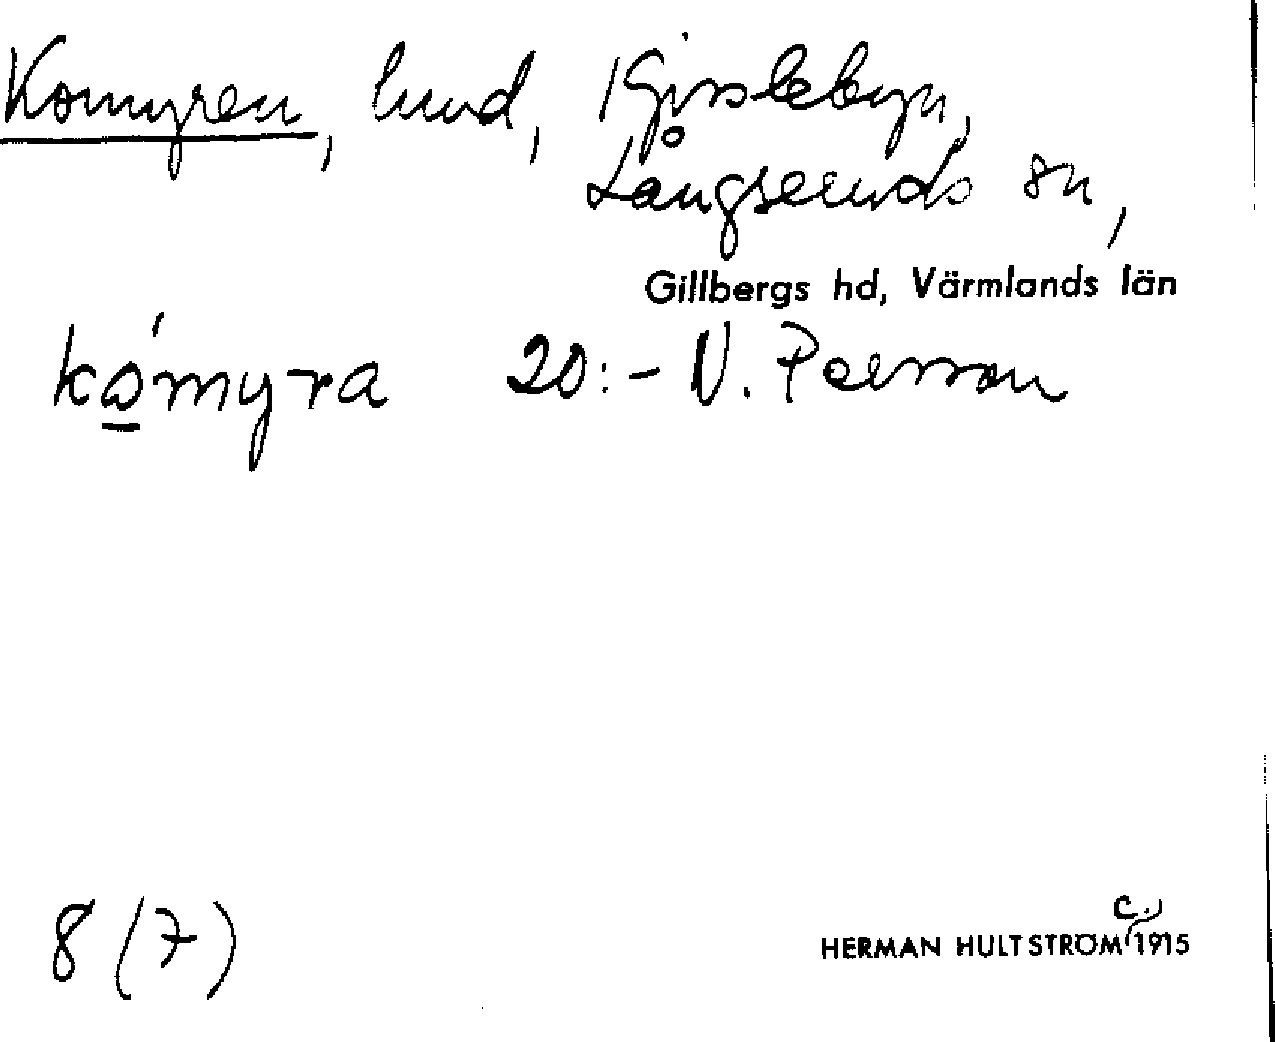 Komyren, lund, Kjirslebyn,
Långseruds sn,
Gillbergs hd, Värmlands län
ko̲ ́myra 20:- N. Persson
8 (7)
HERMAN HULTSTRÖM c. 1915